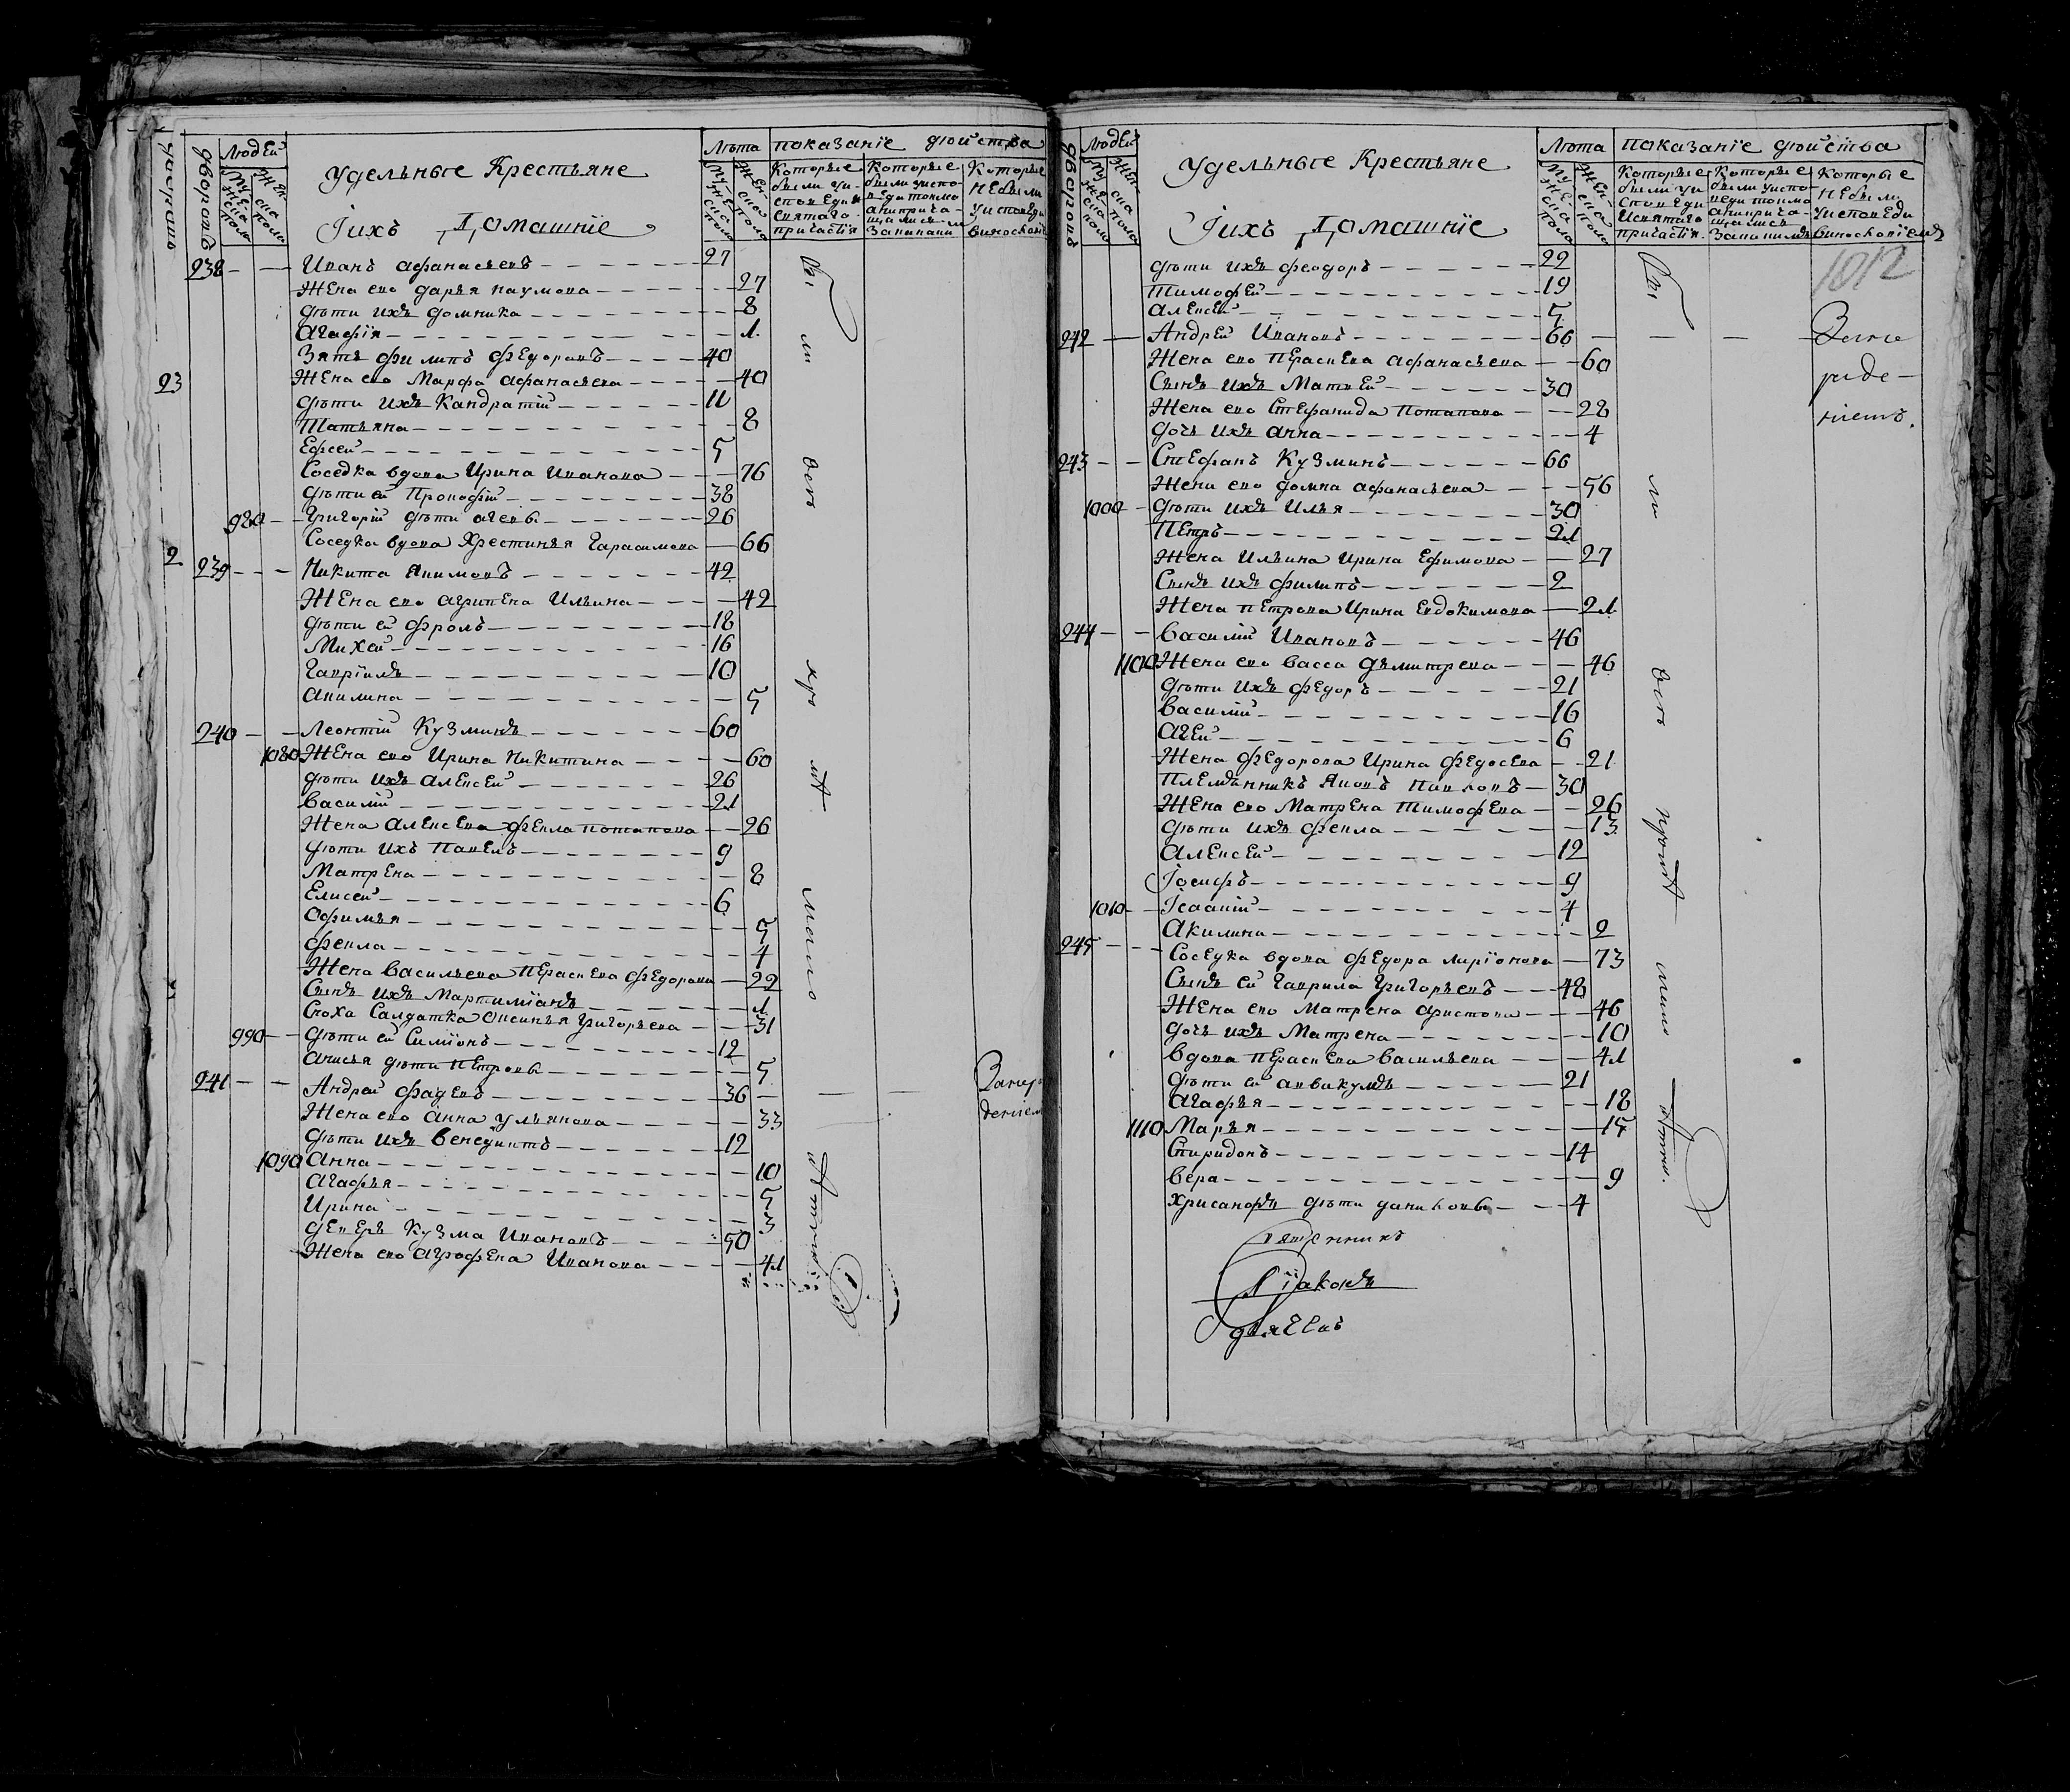 дворовъ Людей Удельные Крестьяне Лѣта показанїе дѣйства
мужеска пола женска пола Которые были уисповеди исвятаго причастїя Которые были уисповеди токмо анепричащались Которые небыли уисповеди
Iихъ Домашнїе
238 Иванъ Афанасьевъ 27
Жена ево дарья наумова 27
дѣти ихъ домника 8
Агафїя 1
Зять филипъ федоровъ 40
23 Жена ево Марфа Афанасьева 40
дѣти ихъ Кандратїй 11
Татьяна 8
Ефсей 5
Соседка вдова Ирина Иванова 76
дѣти ей Прокофїй 38
980 Григорїй дѣти 26
Соседка вдова Хрестинья Гарасимова 66
2 239 Никита Якимовъ 42
Жена ево Агрипена Ильина 42
дѣти ей фролъ 18
Михей 16
Гаврїилъ 10
Акилина 5
240 Леонтїй Кузминъ 60
1080 Жена ево Ирина Никитина 60
дѣти ихъ Алексей 26
Василїй 21
Жена Алексева фекла потапова 26
дѣти ихъ Павелъ 9
Матрена 8
Елисей 6
Афимья 5
фекла 4
Жена Васильева Пераскева федорова 22
Сынъ ихъ Мартимїанъ 1
Сноха Салдатка Оксинья Григорьева 31
990 дѣти ей Симїонъ 12
Анисья дѣти Петровы 5
241 Андрей фадеевъ 36
Жена ево Анна Ульянова 33
дѣти ихъ Венедиктъ 12
1090 Анна 10
Агафья 5
Ирина 3
деверь Кузма Ивановъ 50
Жена ево Аграфена Иванова 41
дворовъ Людей Удельные Крестьяне Лѣта показанїе дѣйства
мужеска пола женска пола Которые были уисповеди исвятаго причастїя. Которые были уисповеди токмо анепричащались Которые небыли уисповеди
Iихъ Домашнїе
1012
дѣти ихъ феодоръ 22
Тимофей 19
Алексей 5
242 Андрей Ивановъ 66
Жена ево Пераскева Афанасьева 60
Сынъ ихъ Матвей 30
Жена ево Стефанида Потапова 28
дочь ихъ Анна 4
243 Стефанъ Кузминъ 66
Жена ево домна Афанасьева 56
1000 дѣти ихъ Илья 30
Петръ 21
Жена Ильина Ирина Ефимова 27
Сынъ ихъ филипъ 2
Жена Петрова Ирина Евдокимова 21
244 Василїй Ивановъ 46
1100 Жена ево Васса дъмитрева 46
дѣти ихъ федоръ 21
Василїй 16
Агей 6
Жена федорова Ирина федосева 21
Племянникъ Яковъ Павловъ 30
Жена ево Матрена Тимофева 26
дѣти ихъ фекла 13
Алексей 12
Iосифъ 9
1010 Iсаакїй 4
Акилина 2
245 Соседка вдова федора лирїонова 73
Сынъ ей Гаврила Григорьевъ 48
Жена ево Матрена 46
дочь ихъ Матрена 10
Вдова Пераскева Васильева 41
дѣти ей 21
Агафья 18
1110 Марья 15
Спиридонъ 14
Вера 9
Хрисанфъ дѣти 4
Дїаконъ